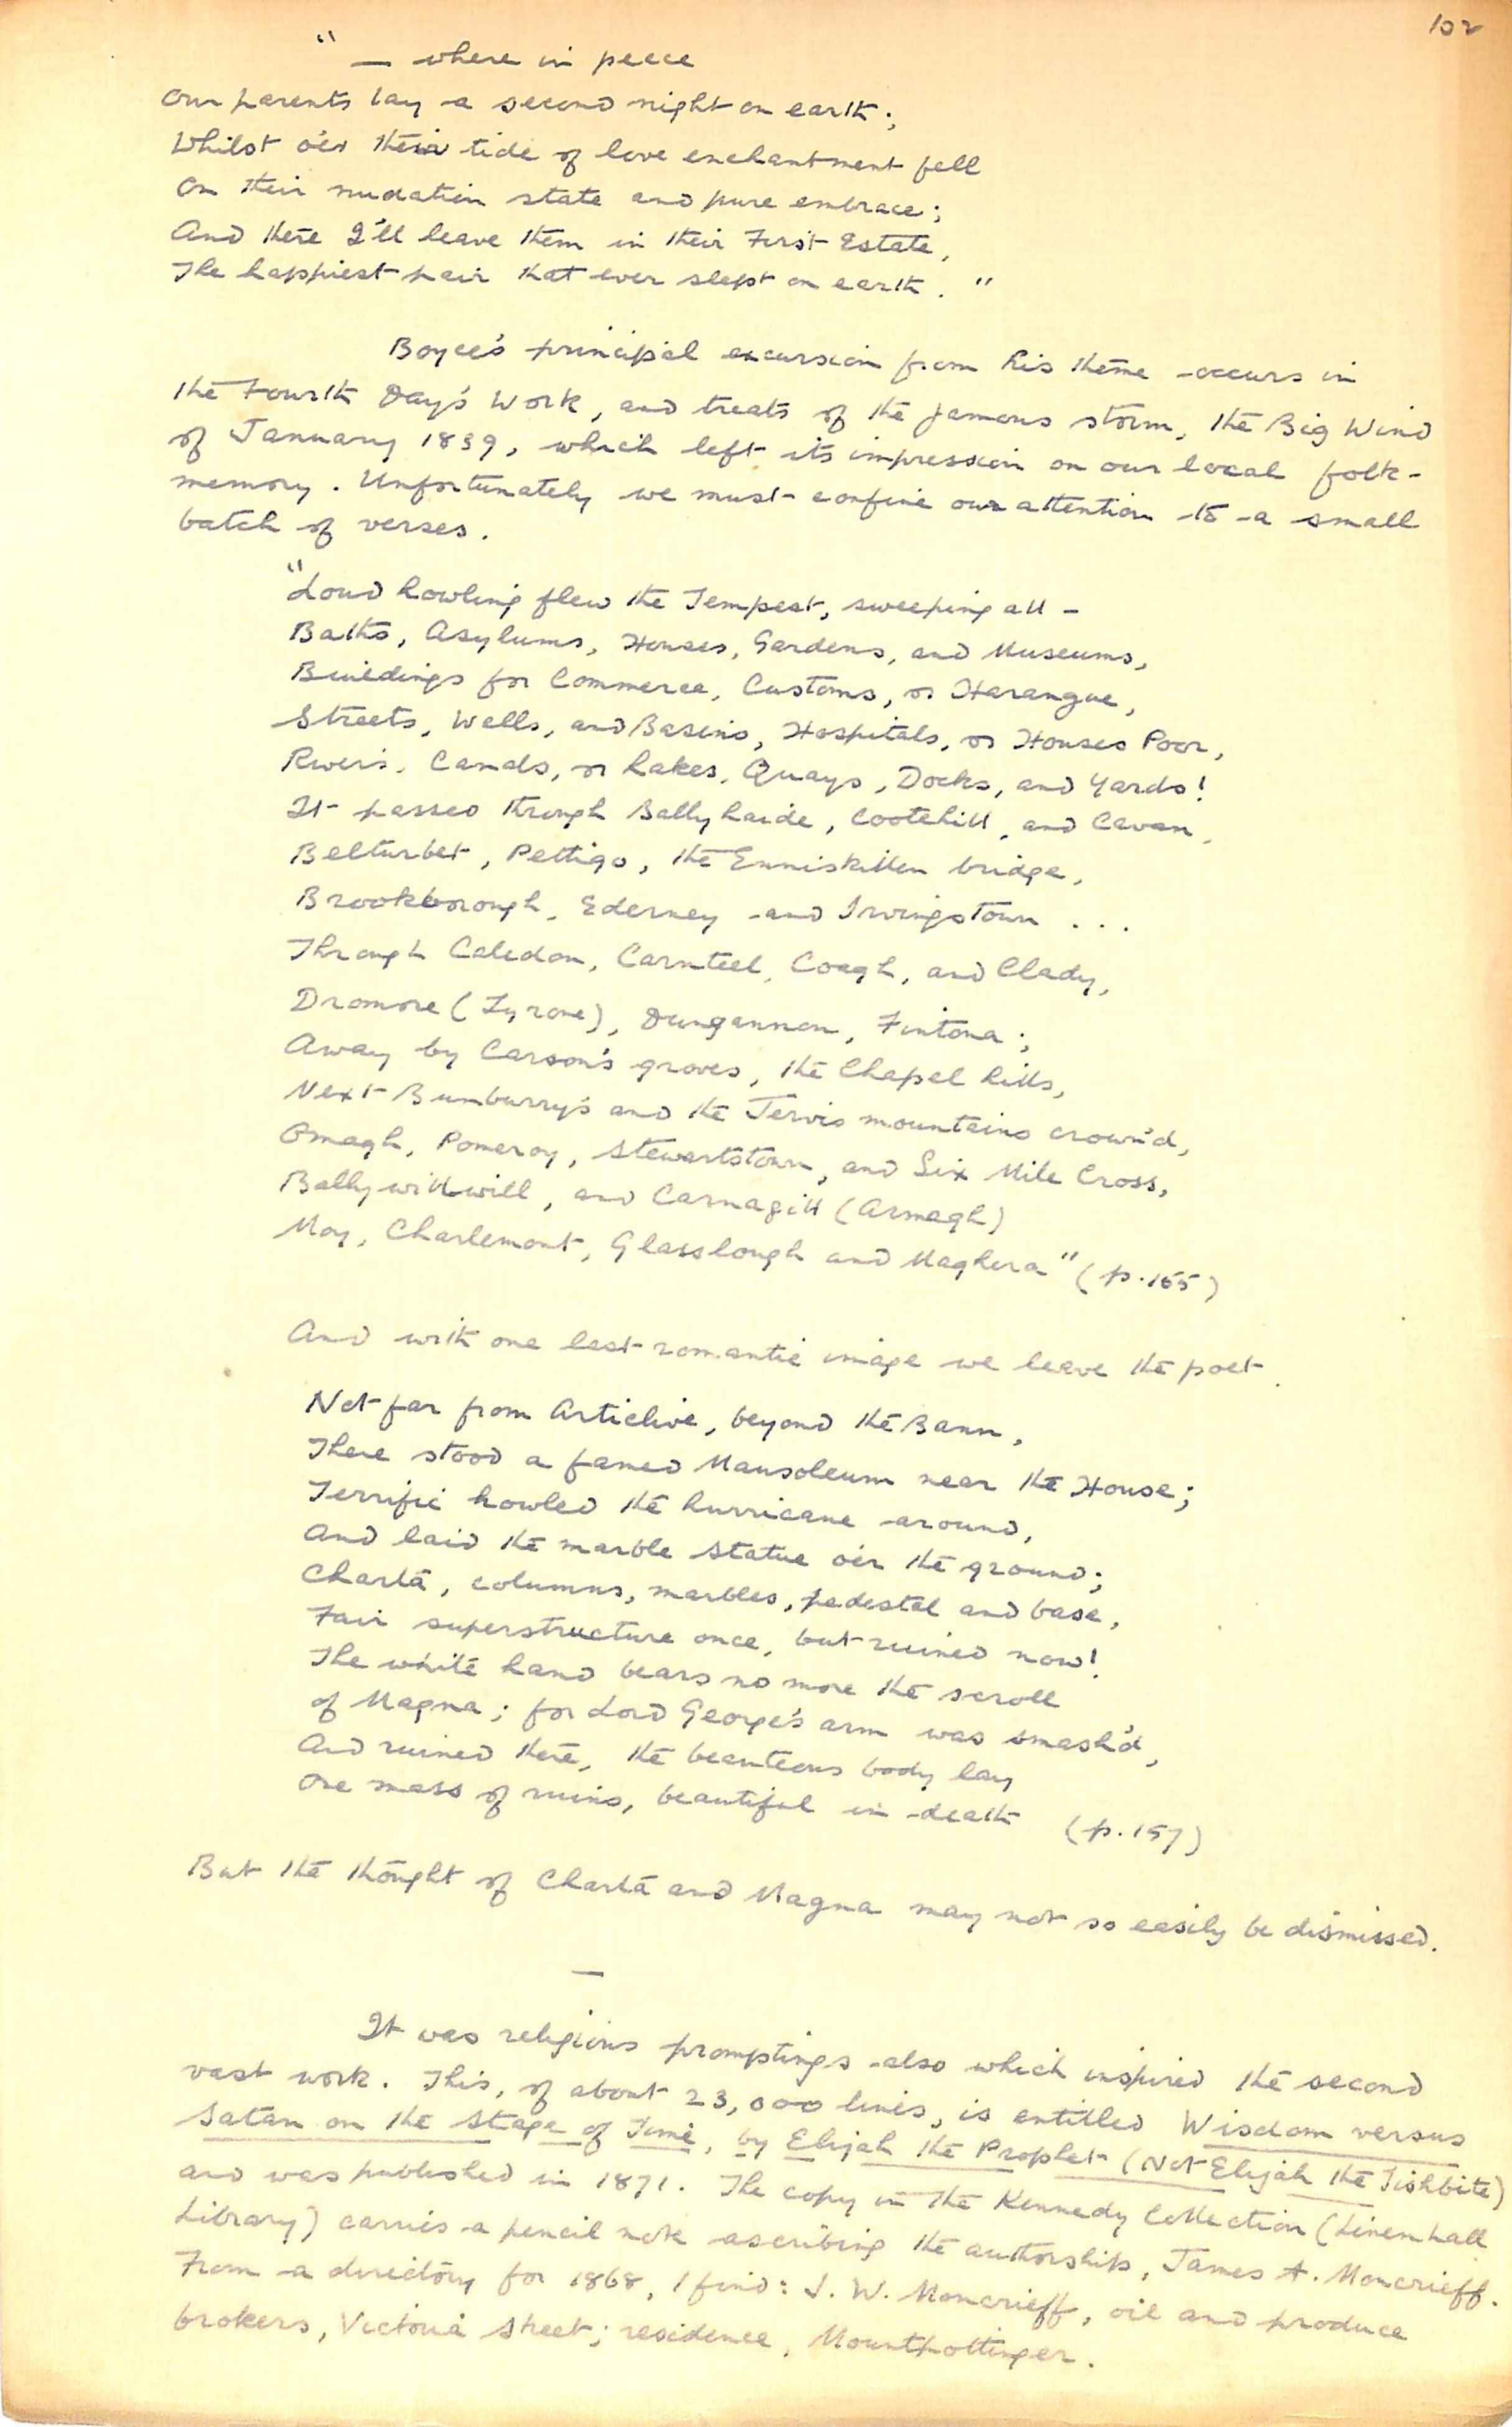 102
" — where in peace
Our parents lay a second night on earth;
Whilst o'er their tide of love enchantment fell
On their nudation state and pure embrace;
And there I'll leave them in their First Estate,
The happiest pair that ever slept on earth. "
Boyce's principal excursion from his theme occurs in
the Fourth Day's Work, and treats of the famous storm, the Big Wind
of January 1839, which left its impression on our local folk-
memory. Unfortunately we must confine our attention to a small
batch of verses.
"Loud howling flew the Tempest, sweeping all -
Baths, Asylums, Houses, Gardens, and Museums,
Buildings for Commerce, Customs, or Harangue,
Streets, Wells, and Basins, Hospitals, or Houses Poor,
Rivers, Canals, or Lakes, Quays, Docks, and Yards!
It passed through Ballyhaide, Cootehill, and Cavan,
Belturbet, Pettigo, the Enniskillen bridge,
Brookborough, Ederney and Irvingstown ...
Through Caledon, Carnteel, Coagh, and Clady,
Dromore (Tyrone), Dungannon, Fintona;
Away by Carson's groves, the Chapel hills,
Next Bunburry's and the Jervis mountains crown'd,
Omagh, Pomeroy, Stewartstown, and Six Mile Cross,
Ballywillwill, and Carnagill (Armagh)
Moy, Charlemont, Glasslough and Maghera" (p.155)
And with one last romantic image we leave the poet.
Not far from Articlive, beyond the Bann,
There stood a famed Mausoleum near the House;
Terrific howled the hurricane around,
And laid the marble statue o'er the ground;
Charta, columns, marbles, pedestal and base,
Fair superstructure once, but ruined now!
The white hand bears no more the scroll
of Magna; for Lord George's arm was smash'd,
And ruined there, the beauteous body lay
One mass of ruins, beautiful in death (p.157)
But the thought of Charta and Magna may not so easily be dismissed.
—
It was religious promptings also which inspired the second
vast work. This, of about 23,000 lines, is entitled Wisdom versus
Satan on the Stage of Time, by Elijah the Prophet (Not Elijah the Tishbite)
and was published in 1871. The copy in the Kennedy Collection (Linenhall
Library) carries a pencil note ascribing the authorship, James A. Moncrieff.
From a directory for 1868, I find: J. W. Moncrieff, oil and produce
brokers, Victoria Street; residence, Mountpottinger.